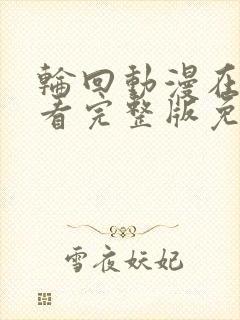 輪回動漫在
看完整版免
雪夜妖妃